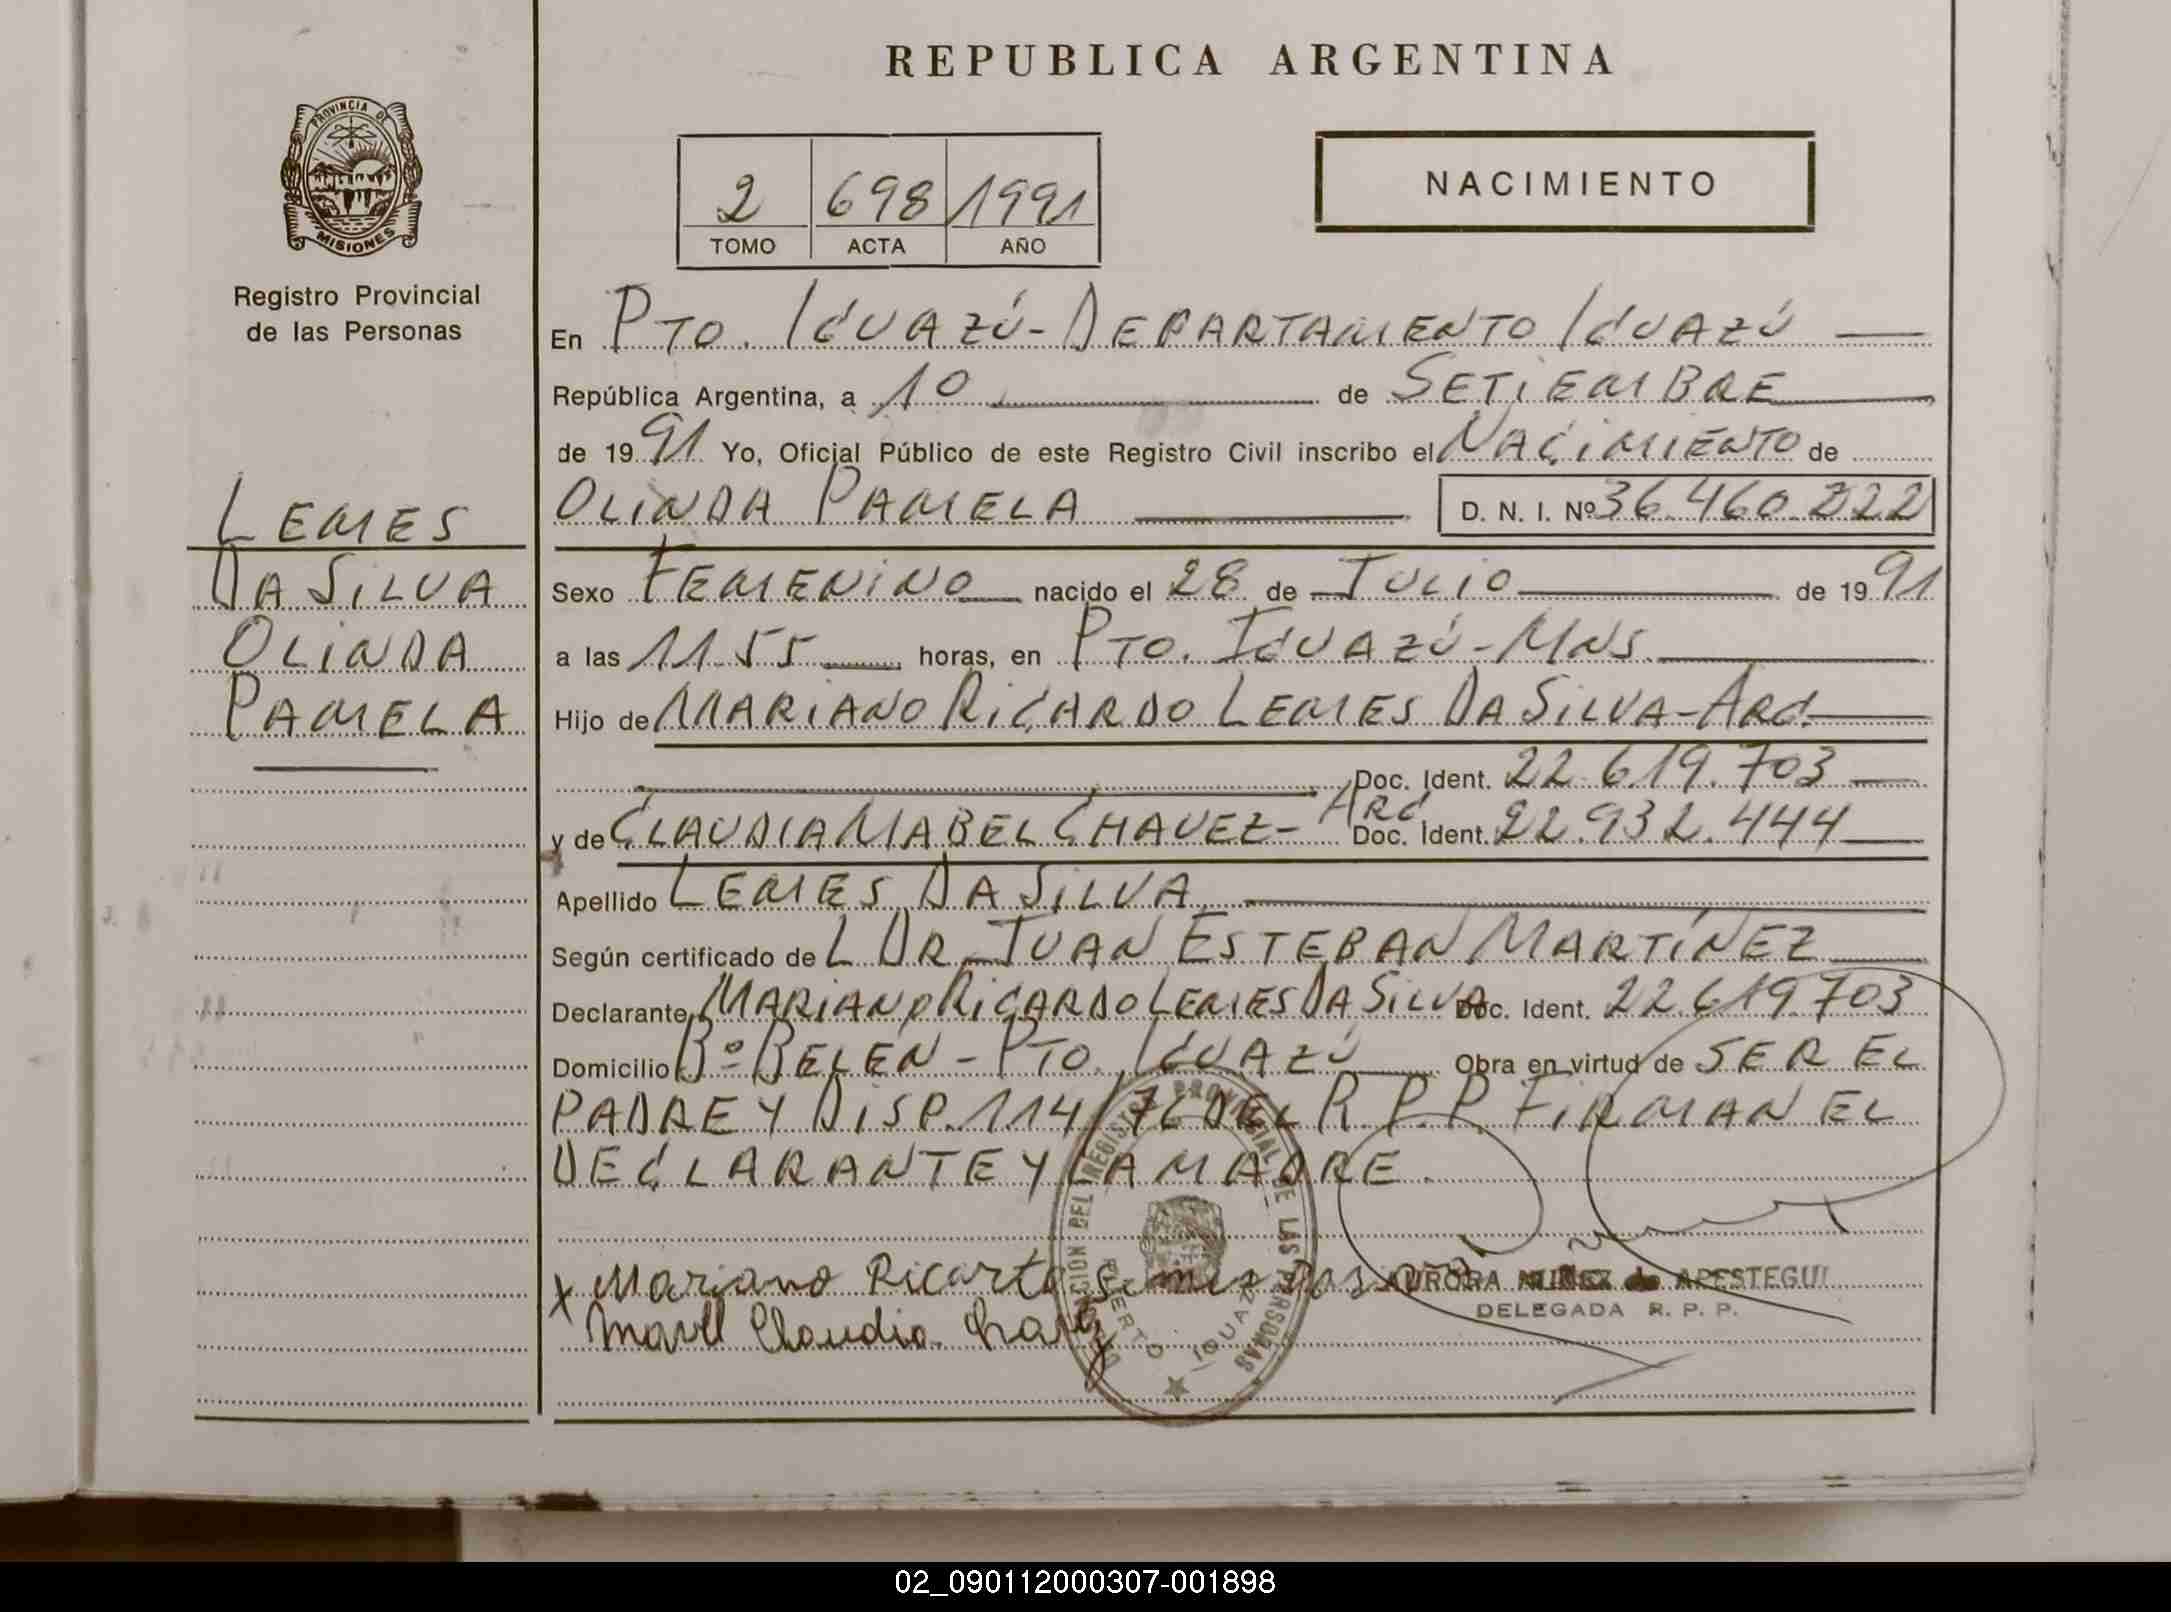 REPUBLICA ARGENTINA
PROVINCIA DE
MISIONES
Registro Provincial
de las Personas
2 698 1991
TOMO ACTA AÑO
NACIMIENTO
LEMES
DA SILVA
OLINDA
PAMELA
En PTO. IGUAZÚ - DEPARTAMENTO IGUAZÚ
República Argentina, a 10 de SETIEMBRE
de 1991 Yo, Oficial Público de este Registro Civil inscribo el NACIMIENTO de
OLINDA PAMELA D. N. I. Nº 36.460.222
Sexo FEMENINO nacido el 28 de JULIO de 1991
a las 11 55 horas, en PTO. IGUAZÚ - MNS.
Hijo de MARIANO RICARDO LEMES DA SILVA - ARG.
Doc. Ident. 22.619.703
y de CLAUDIA MABEL CHAVEZ - ARG Doc. Ident. 22.932.444
Apellido LEMES DA SILVA
Según certificado de L DR. JUAN ESTEBAN MARTÍNEZ
Declarante MARIANO RICARDO LEMES DA SILVA Doc. Ident. 22.619.703
Domicilio Bº BELEN - PTO. IGUAZÚ Obra en virtud de SER EL
PADRE Y DISP. 114/76 DEL R.P.P. FIRMAN EL
DECLARANTE Y LA MADRE.
DELEGACION DEL REGISTRO PROVINCIAL DE LAS PERSONAS
PUERTO IGUAZU
Mariano Ricarto
Claudia
AURORA NUÑEZ de APESTEGUI
DELEGADA R. P. P.
02_090112000307-001898